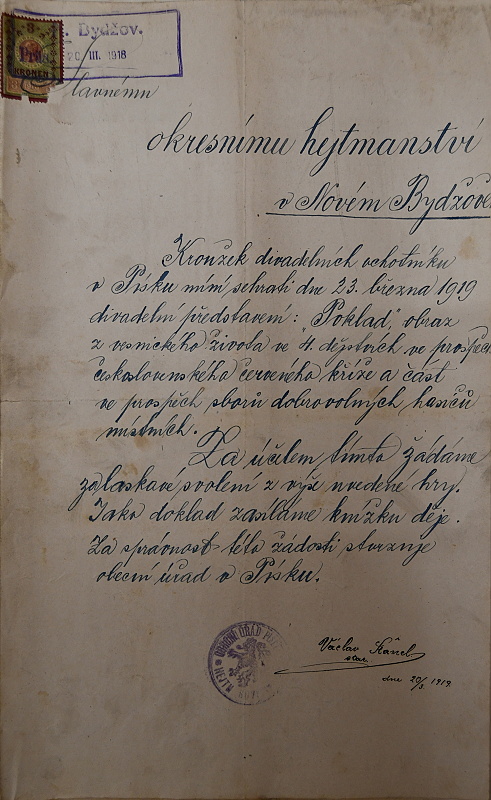 Bydžov.
20 III. 1918
8
KRONEN
Slavnému
okresnímu hejtmanství
v Novém Bydžově
Kroužek divadelních ochotníků
v Písku míní sehrati dne 23. března 1919
divadelní představení: "Poklad," obraz
z vesnického života ve 4 dějstvích ve prospěch
československého červeného kříže a část
ve prospěch sborů dobrovolných hasičů
místních.
Za účelem tímto žádáme
za laskavé svolení z výše uvedené hry.
Jako doklad zasíláme knížku děje.
Za správnost této žádosti stvrzuje
obecní úřad v Písku.
OBECNÍ ÚŘAD
Václav
star.
dne 20/3. 1919.